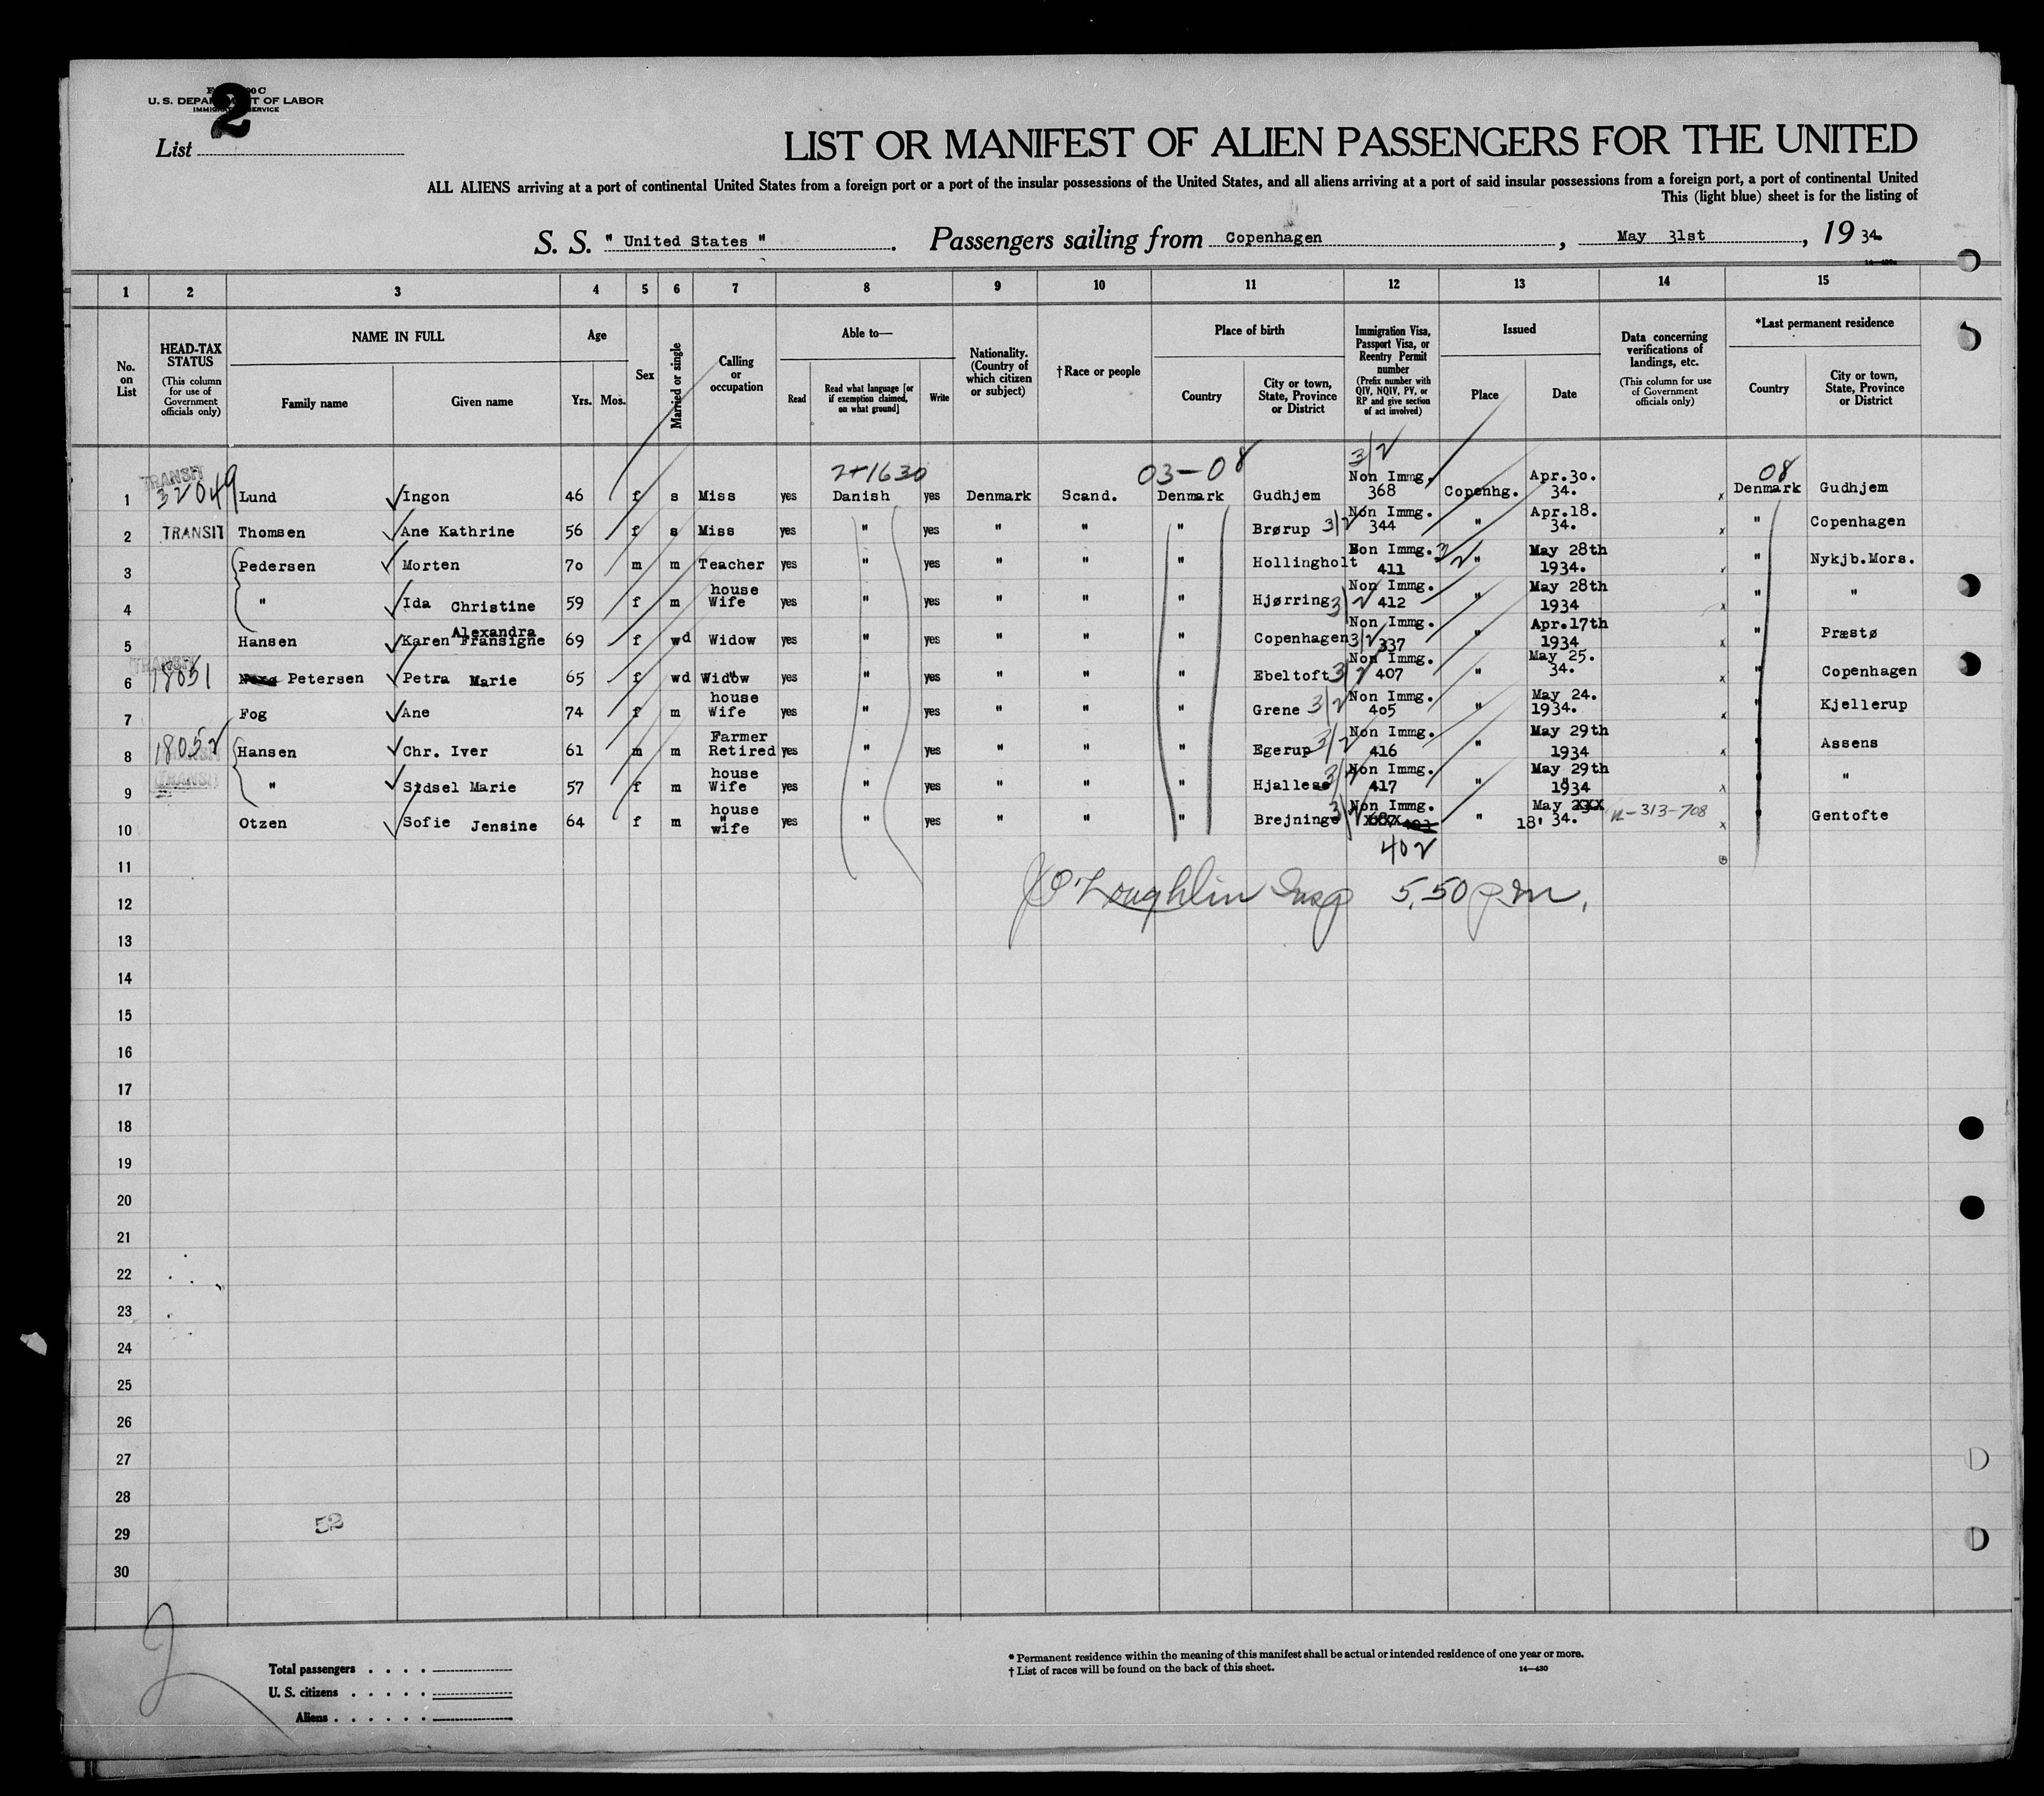 U. S. DEPARTMENT OF LABOR
IMMIGRATION SERVICE
2
List
LIST OR MANIFEST OF ALIEN PASSENGERS FOR THE UNITED
ALL ALIENS arriving at a port of continental United States from a foreign port or a port of the insular possessions of the United States, and all aliens arriving at a port of said insular possessions from a foreign port, a port of continental United
This (light blue) sheet is for the listing of
S. S. " United States " . Passengers sailing from Copenhagen , May 31st , 19 34.
1 2 3 4 5 6 7 8 9 10 11 12 13 14 15
No. on List
HEAD-TAX STATUS (This column for use of Government officials only)
NAME IN FULL
Family name Given name
Age
Yrs. Mos.
Sex
Married or single
Calling or occupation
Able to—
Read Read what language [or if exemption claimed, on what ground] Write
Nationality. (Country of which citizen or subject)
†Race or people
Place of birth
Country City or town, State, Province or District
Immigration Visa, Passport Visa, or Reentry Permit number (Prefix number with QIV, NQIV, PV, or RP and give section of act involved)
Issued
Place Date
Data concerning verifications of landings, etc. (This column for use of Government officials only)
*Last permanent residence
Country City or town, State, Province or District
2+1630 03-08 3/2 08
1 TRANSIT 32049 Lund Ingon 46 f s Miss yes Danish yes Denmark Scand. Denmark Gudhjem Non Immg. 368 Copenhg. Apr.30. 34. x Denmark Gudhjem
2 TRANSIT Thomsen Ane Kathrine 56 f s Miss yes " yes " " " Brørup 3/2 Non Immg. 344 " Apr.18. 34. x " Copenhagen
3 Pedersen Morten 70 m m Teacher yes " yes " " " Hollingholt Non Immg. 411 3/2 " May 28th 1934. " Nykjb.Mors.
4 " Ida Christine 59 f m house Wife yes " yes " " " Hjørring 3/2 Non Immg. 412 " May 28th 1934 x " "
5 Hansen Karen Alexandra Fransigne 69 f wd Widow yes " yes " " " Copenhagen 3/2 Non Immg. 337 " Apr.17th 1934 x " Præstø
6 TRANSIT 18051 Petersen Petra Marie 65 f wd Widow yes " yes " " " Ebeltoft 3/2 Non Immg. 407 " May 25. 34. x " Copenhagen
7 Fog Ane 74 f m house Wife yes " yes " " " Grene 3/2 Non Immg. 405 " May 24. 1934. x " Kjellerup
8 18052 TRANSIT Hansen Chr. Iver 61 m m Farmer Retired yes " yes " " " Egerup 3/2 Non Immg. 416 " May 29th 1934 x " Assens
9 TRANSIT " Sidsel Marie 57 f m house Wife yes " yes " " " Hjallese 3/2 Non Immg. 417 " May 29th 1934 x " "
10 Otzen Sofie Jensine 64 f m house wife yes " yes " " " Brejninge 3/2 Non Immg. 402 " May 18' 34. n-313-708 x " Gentofte
11
12 J O'Loughlin Insp 5.50 p.m.
13
14
15
16
17
18
19
20
21
22
23
24
25
26
27
28
29 52
30
2
Total passengers . . . .
U. S. citizens . . . . .
Aliens . . . . . .
* Permanent residence within the meaning of this manifest shall be actual or intended residence of one year or more.
† List of races will be found on the back of this sheet. 14—430